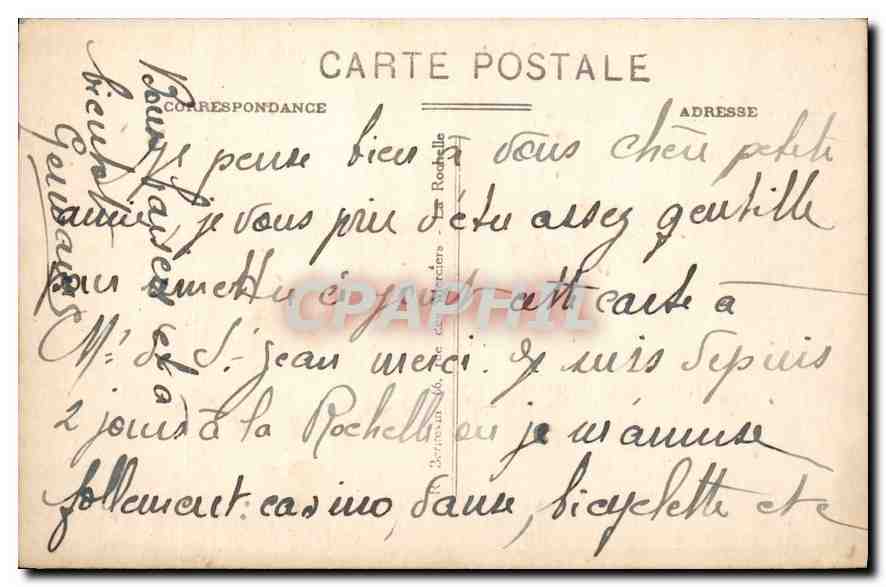 CARTE POSTALE
CORRESPONDANCE
ADRESSE
je pense bien à vous chère petite
amie, je vous prie d'être assez gentille
pour remettre ci joint cette carte à
Mr de St Jean merci. Je suis depuis
2 jours à la Rochelle où je m'amuse
follement: casino, danse, bicyclette etc
Bons baisers et à
bientôt
Germaine
des Merciers - La Rochelle
CPAPHIL